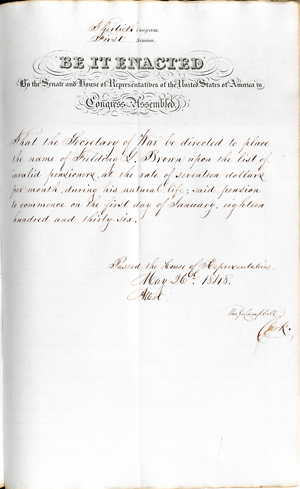 Thirtieth Congress
First Session.
BE IT ENACTED
By the Senate and House of Representatives of the United States of America in
Congress Assembled,
That the Secretary of War be directed to place
the name of Fielding G. Brown upon the list of
invalid pensioners, at the rate of seventeen dollars
per month, during his natural life, said pension
to commence on the first day of January, eighteen
hundred and thirty six.
Passed the House of Representatives,
May 26th, 1848.
Attest
Tho J Campbell
Clerk.